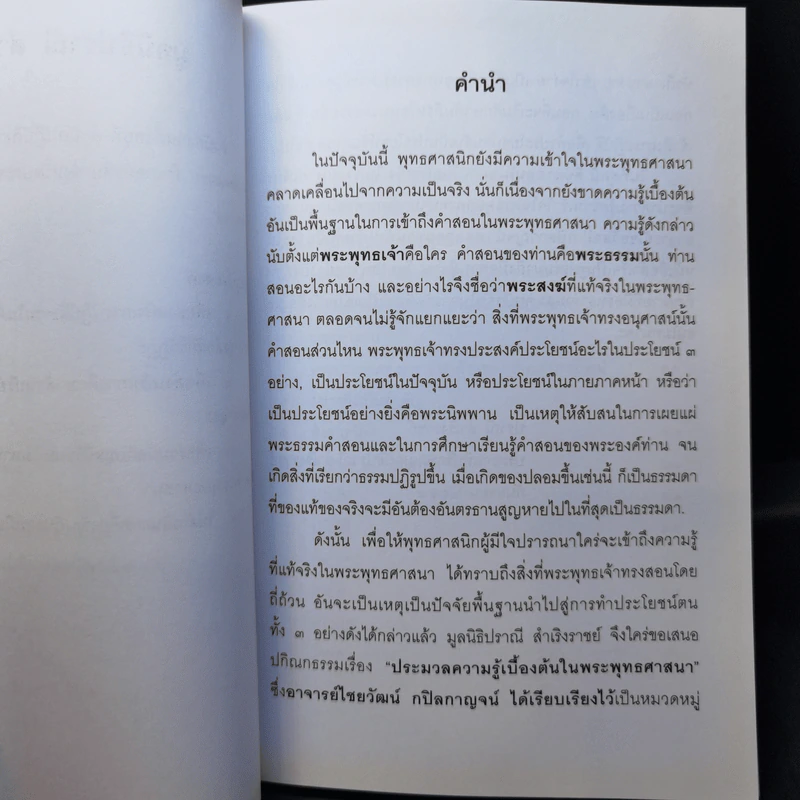 คำนำ
ในปัจจุบันนี้ พุทธศาสนิกยังมีความเข้าใจในพระพุทธศาสนา
คลาดเคลื่อนไปจากความเป็นจริง นั่นก็เนื่องจากยังขาดความรู้เบื้องต้น
อันเป็นพื้นฐานในการเข้าถึงคำสอนในพระพุทธศาสนา ความรู้ดังกล่าว
นับตั้งแต่พระพุทธเจ้าคือใคร คำสอนของท่านคือพระธรรมนั้น ท่าน
สอนอะไรกันบ้าง และอย่างไรจึงชื่อว่าพระสงฆ์ที่แท้จริงในพระพุทธ-
ศาสนา ตลอดจนไม่รู้จักแยกแยะว่า สิ่งที่พระพุทธเจ้าทรงอนุศาสน์นั้น
คำสอนส่วนไหน พระพุทธเจ้าทรงประสงค์ประโยชน์อะไรในประโยชน์ ๓
อย่าง, เป็นประโยชน์ในปัจจุบัน หรือประโยชน์ในภายภาคหน้า หรือว่า
เป็นประโยชน์อย่างยิ่งคือพระนิพพาน เป็นเหตุให้สับสนในการเผยแผ่
พระธรรมคำสอนและในการศึกษาเรียนรู้คำสอนของพระองค์ท่าน จน
เกิดสิ่งที่เรียกว่าธรรมปฏิรูปขึ้น เมื่อเกิดของปลอมขึ้นเช่นนี้ ก็เป็นธรรมดา
ที่ของแท้ของจริงจะมีอันต้องอันตรธานสูญหายไปในที่สุดเป็นธรรมดา.
ดังนั้น เพื่อให้พุทธศาสนิกผู้มีใจปรารถนาใคร่จะเข้าถึงความรู้
ที่แท้จริงในพระพุทธศาสนา ได้ทราบถึงสิ่งที่พระพุทธเจ้าทรงสอนโดย
ถี่ถ้วน อันจะเป็นเหตุเป็นปัจจัยพื้นฐานนำไปสู่การทำประโยชน์ตน
ทั้ง ๓ อย่างดังได้กล่าวแล้ว มูลนิธิปราณี สำเริงราชย์ จึงใคร่ขอเสนอ
ปกิณกธรรมเรื่อง "ประมวลความรู้เบื้องต้นในพระพุทธศาสนา"
ซึ่งอาจารย์ไชยวัฒน์ กปิลกาญจน์ ได้เรียบเรียงไว้เป็นหมวดหมู่